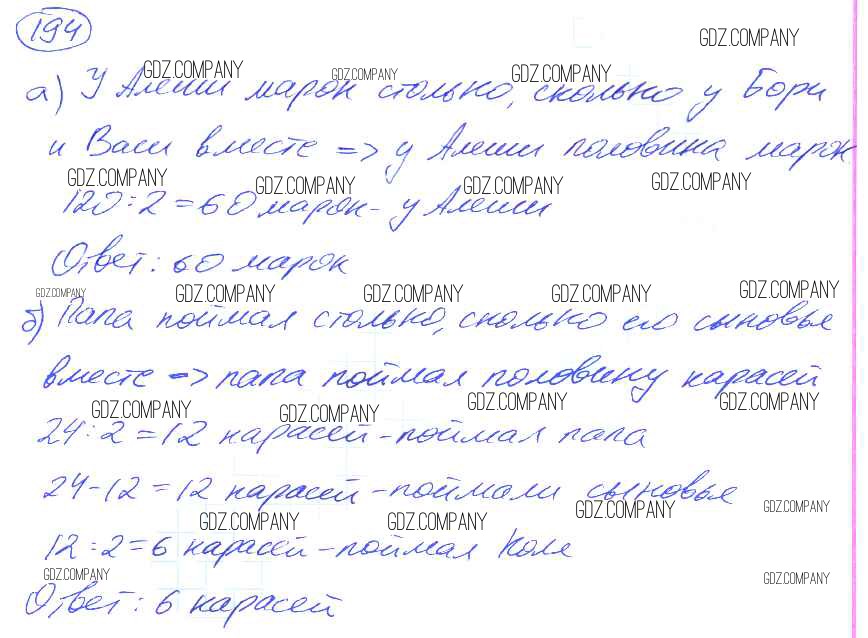 194
GDZ.COMPANY
GDZ.COMPANY GDZ.COMPANY GDZ.COMPANY
а) У Алеши марок столько, сколько у Бори
и Васи вместе => у Алеши половина марок
GDZ.COMPANY GDZ.COMPANY GDZ.COMPANY GDZ.COMPANY
120:2=60 марок - у Алеши
Ответ: 60 марок
GDZ.COMPANY GDZ.COMPANY GDZ.COMPANY GDZ.COMPANY GDZ.COMPANY
б) Папа поймал столько, сколько его сыновья
вместе => папа поймал половину карасей
GDZ.COMPANY GDZ.COMPANY GDZ.COMPANY GDZ.COMPANY
24:2=12 карасей - поймал папа
24-12=12 карасей - поймали сыновья
GDZ.COMPANY GDZ.COMPANY GDZ.COMPANY GDZ.COMPANY
12:2=6 карасей - поймал Коля
GDZ.COMPANY GDZ.COMPANY
Ответ: 6 карасей